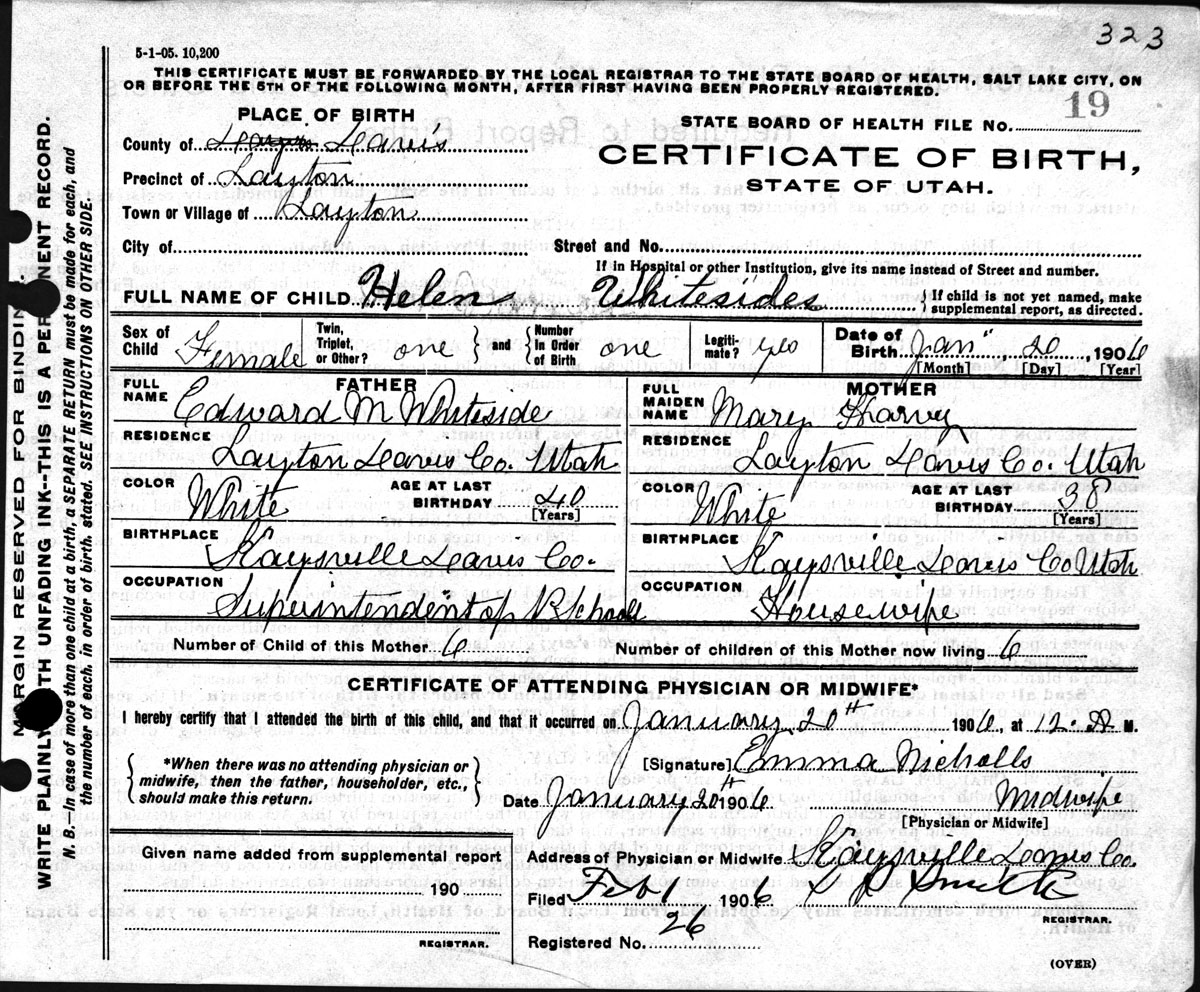 323
5-1-05. 10,200
THIS CERTIFICATE MUST BE FORWARDED BY THE LOCAL REGISTRAR TO THE STATE BOARD OF HEALTH, SALT LAKE CITY, ON
OR BEFORE THE 5TH OF THE FOLLOWING MONTH, AFTER FIRST HAVING BEEN PROPERLY REGISTERED.
19
PLACE OF BIRTH
STATE BOARD OF HEALTH FILE No.
County of Davis
CERTIFICATE OF BIRTH,
Precinct of Layton
STATE OF UTAH.
Town or Village of Layton
City of Street and No.
If in Hospital or other Institution, give its name instead of Street and number.
FULL NAME OF CHILD Helen Whitesides { If child is not yet named, make
supplemental report, as directed.
Sex of Child Female
Twin, Triplet, or Other? one } and { Number In Order of Birth one
Legiti-mate? yes
Date of Birth Jan 20, 1906
[Month] [Day] [Year]
FATHER
FULL NAME Edward M Whiteside
MOTHER
FULL MAIDEN NAME Mary Harvy
RESIDENCE Layton Davis Co. Utah
RESIDENCE Layton Davis Co. Utah
COLOR White AGE AT LAST BIRTHDAY 40 [Years]
COLOR White AGE AT LAST BIRTHDAY 38 [Years]
BIRTHPLACE Kaysville Davis Co.
BIRTHPLACE Kaysville Davis Co Utah
OCCUPATION Superintendent of Schools
OCCUPATION Housewife
Number of Child of this Mother 6 Number of children of this Mother now living 6
CERTIFICATE OF ATTENDING PHYSICIAN OR MIDWIFE*
I hereby certify that I attended the birth of this child, and that it occurred on January 20th 1906, at 12. A M.
{ *When there was no attending physician or
midwife, then the father, householder, etc.,
should make this return. }
[Signature] Emma Nicholls
Date January 20th 1906 Midwife
[Physician or Midwife]
Given name added from supplemental report
190
REGISTRAR.
Address of Physician or Midwife Kaysville Davis Co.
Filed Feb 1 1906. Smith
REGISTRAR.
Registered No. 26
(OVER)
MARGIN RESERVED FOR BINDING
WRITE PLAINLY WITH UNFADING INK--THIS IS A PERMANENT RECORD.
N. B.--In case of more than one child at a birth, a SEPARATE RETURN must be made for each, and
the number of each, in order of birth, stated. SEE INSTRUCTIONS ON OTHER SIDE.